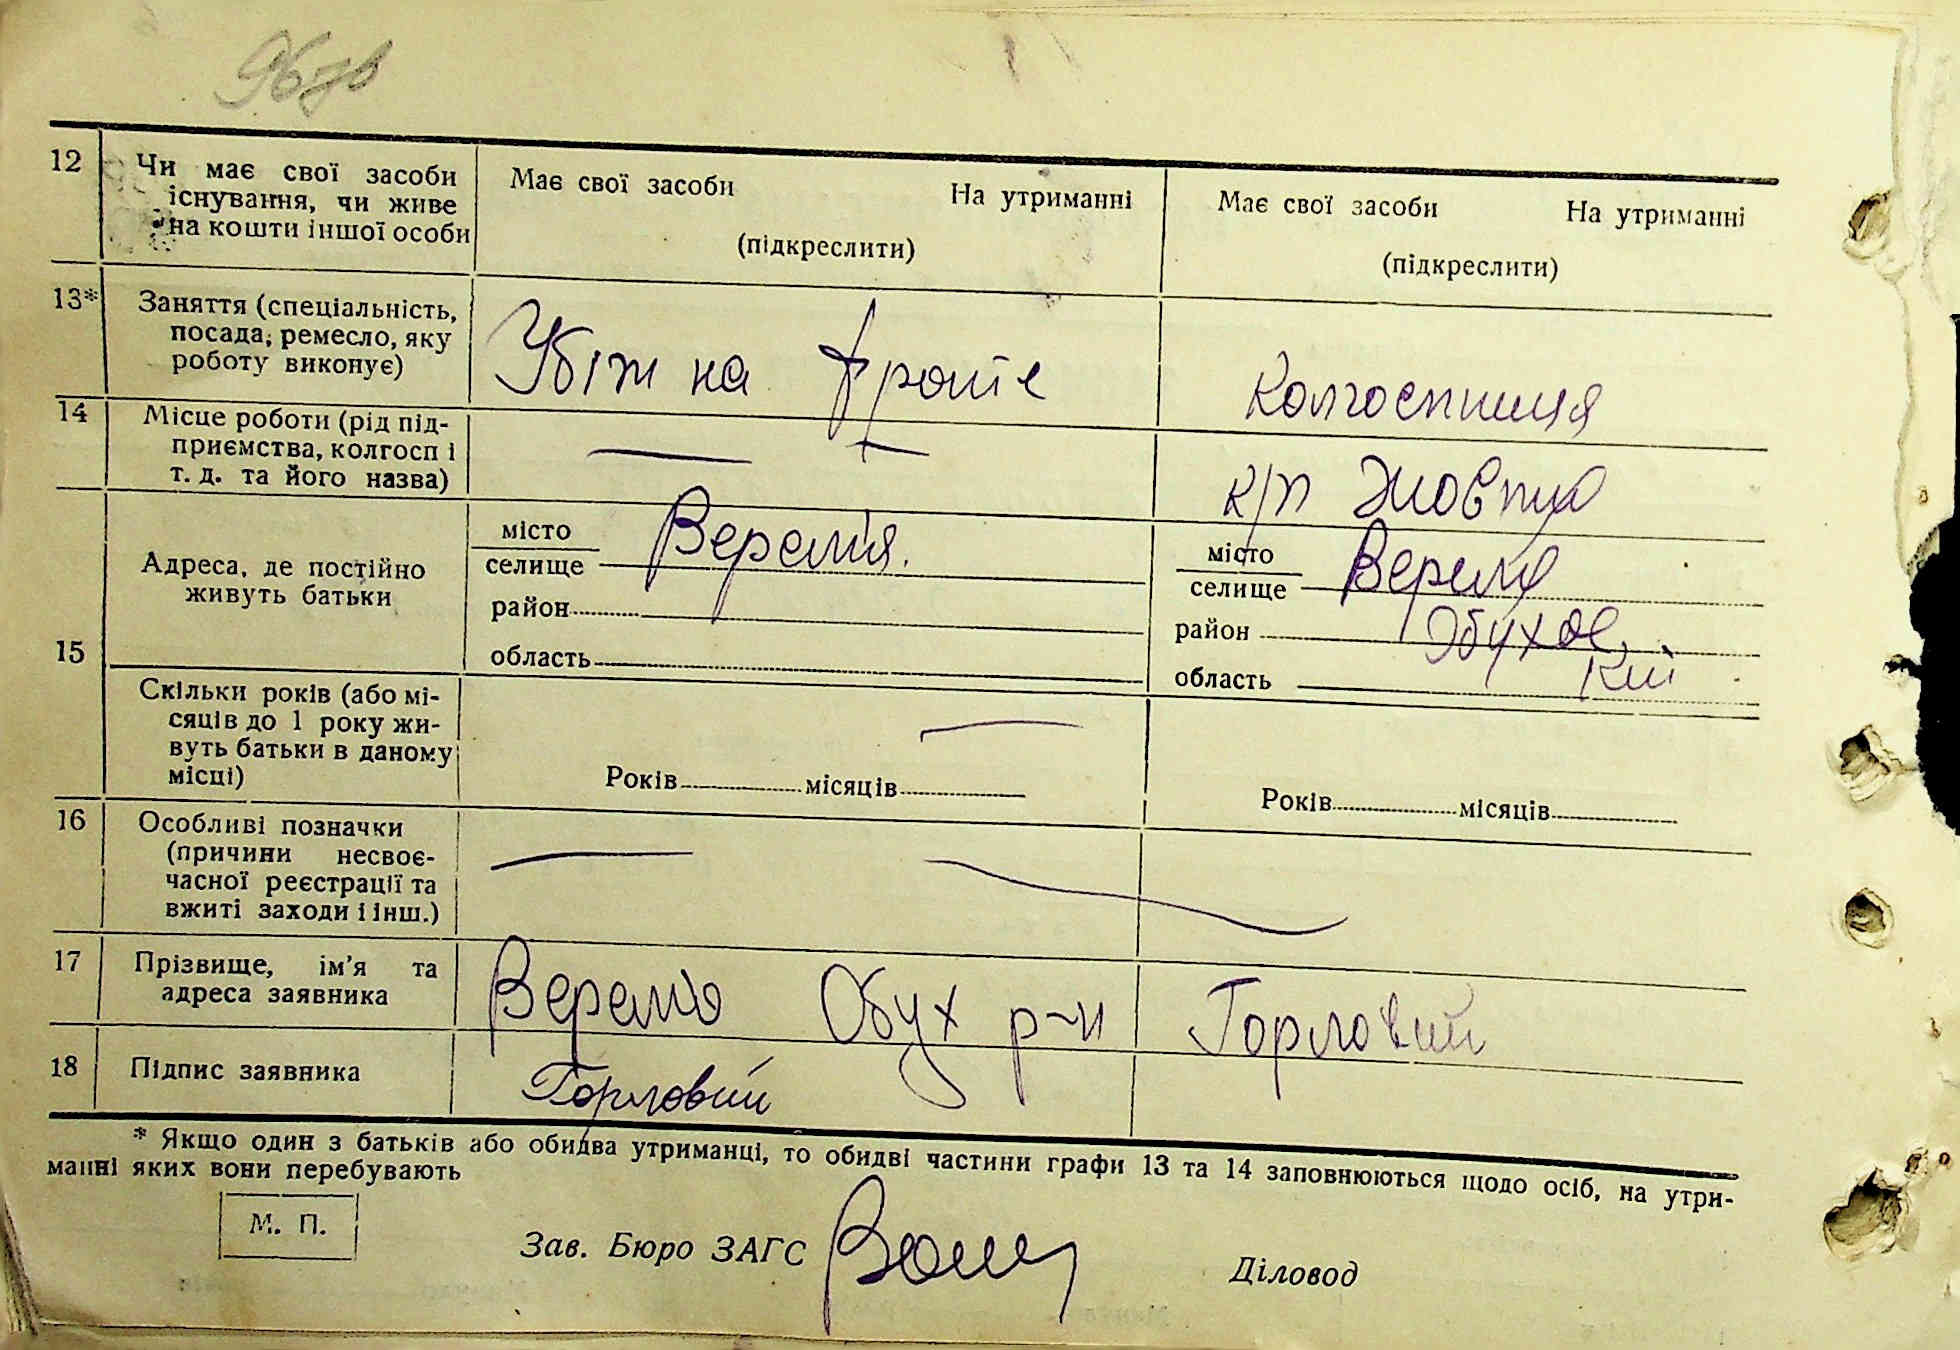 96зв
12 Чи має свої засоби існування, чи живе на кошти іншої особи
Має свої засоби На утриманні
(підкреслити)
Має свої засоби На утриманні
(підкреслити)
13* Заняття (спеціальність, посада, ремесло, яку роботу виконує)
Убіт на фронте
Колгоспниця
14 Місце роботи (рід підприємства, колгосп і т. д. та його назва)
—
к/п Жовтня
15 Адреса, де постійно живуть батьки
місто
селище Верем'я.
район
область
місто
селище Верем'я
район Обухов.
область Киї
Скільки років (або місяців до 1 року живуть батьки в даному місці)
Років місяців
Років місяців
16 Особливі позначки (причини несвоєчасної реєстрації та вжиті заходи і інш.)
—
17 Прізвище, ім'я та адреса заявника
Верем'я Обух р-н Горловий
18 Підпис заявника
Горловий
* Якщо один з батьків або обидва утриманці, то обидві частини графи 13 та 14 заповнюються щодо осіб, на утри-
манні яких вони перебувають
М. П.
Зав. Бюро ЗАГС
Діловод